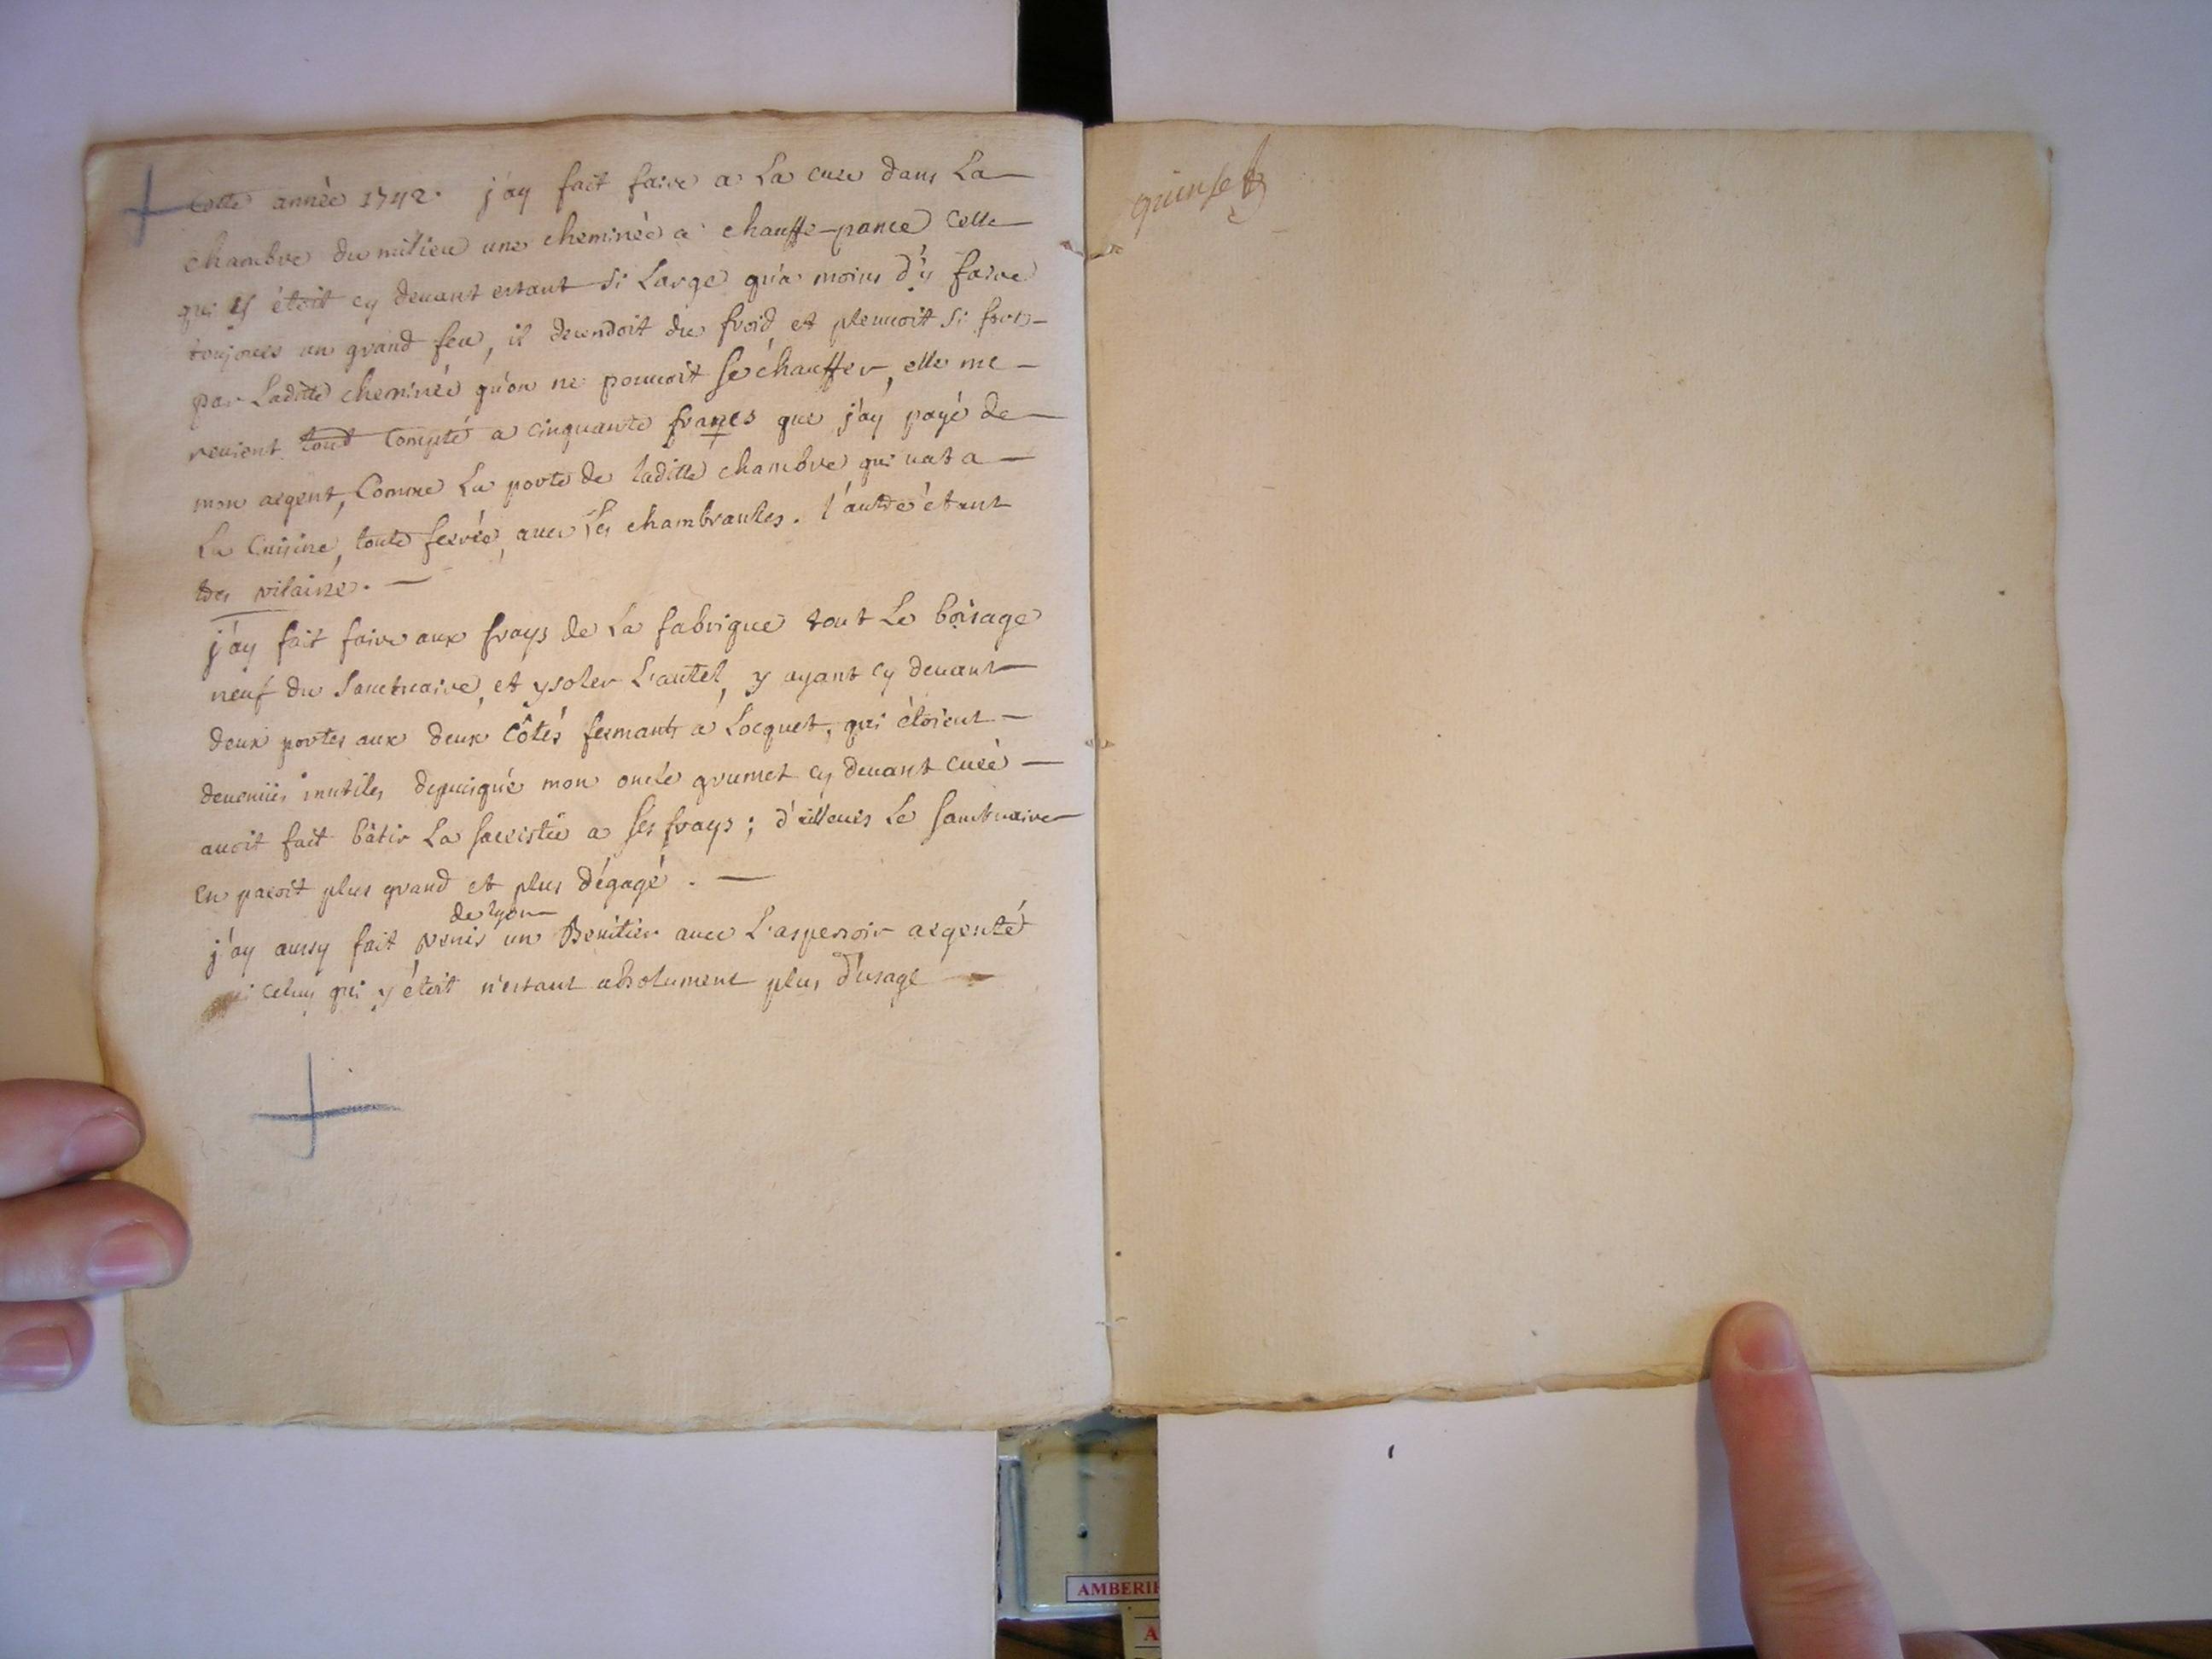 Cette année 1742. j'ay fait faire a La cure dans La
chambre du milieu une cheminée a chauffe-pance celle
qui y étoit cy devant estant si Large qu'a moins d'y faire
toujours un grand feu, il decendoit du froid et pleuvoit si fort
par Laditte cheminée qu'on ne pouvoit se chauffer, elle me
revient tout compté a cinquante francs que j'ay payé de
mon argent, Comme La porte de laditte chambre qui vat a
La Cuisine, toute ferrée, avec Les chambranles. l'autre étant
des vilaine.
j'ay fait faire aux frays de La fabrique tout Le boisage
neuf du Sanctuaire, et ysoler L'autel, y ayant cy devant
deux portes aux deux Côtés fermants a Locquet, qui étoient
devenües inutiles depuisque mon oncle grumet cy devant curé
avoit fait bâtir La sacristie a ses frays; d'ailleurs Le sanctuaire
en paroit plus grand et plus dégagé.
de lyon
j'ay aussy fait venir un Benitier avec L'aspersoir argenté
celuy qui y étoit n'estant absolument plus d'usage
AMBERI
A